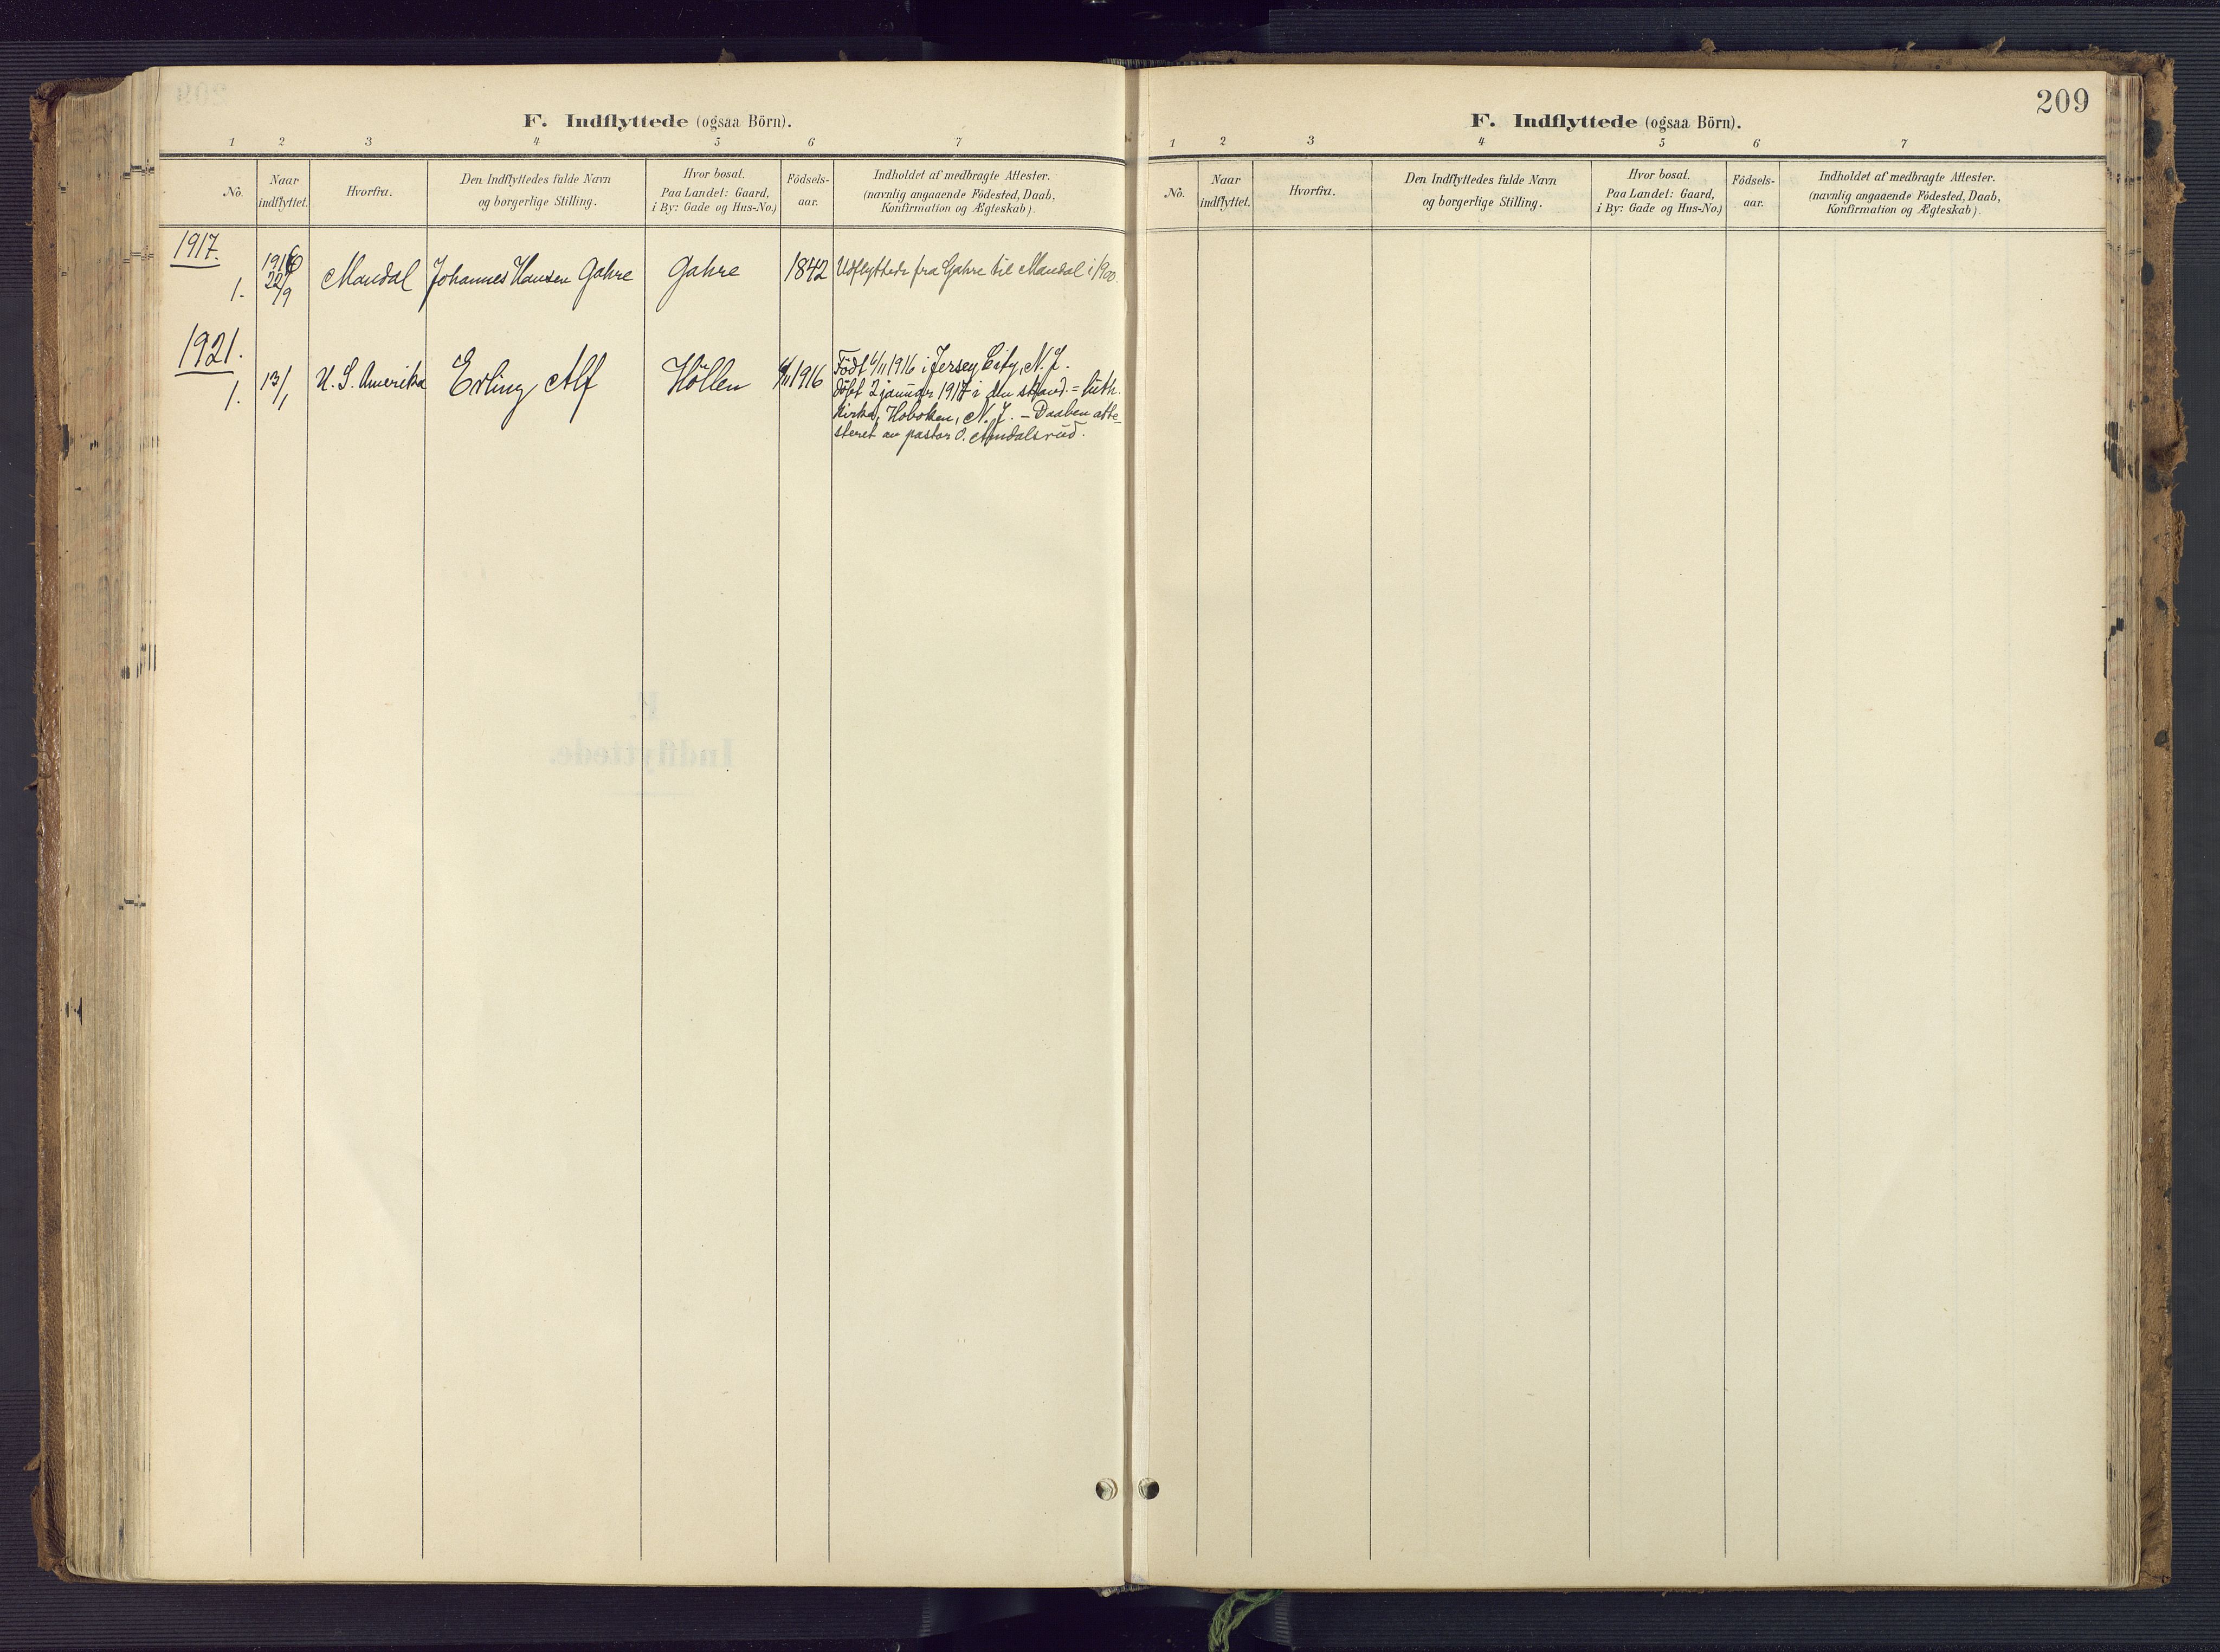 F. Indflyttede (ogsaa Börn).
1 2 3 4 5 6 7
No. Naar indflyttet. Hvorfra. Den Indflyttedes fulde Navn og borgerlige Stilling. Hvor bosat. Paa Landet: Gaard, i By: Gade og Hus-No.) Födsels-aar. Indholdet af medbragte Attester. (navnlig angaaende Födested, Daab, Konfirmation og Ægteskab).
1917.
1. 1916 22/9 Mandal Johannes Hansen Gahre Gahre 1842 Udflyttede fra Gahre til Mandal i 1900.
1921.
1. 13/1 U. S. Amerika Erling Alf Höllen 4/11 1916 Födt 4/11 1916 i Jersey City, N. J.
döbt 2 januar 1917 i den skand. = luth.
Kirke, Hoboken, N. J. – Daaben atte-
steret av pastor O. Amdalsrud.
209
F. Indflyttede (ogsaa Börn).
1 2 3 4 5 6 7
No. Naar indflyttet. Hvorfra. Den Indflyttedes fulde Navn og borgerlige Stilling. Hvor bosat. Paa Landet: Gaard, i By: Gade og Hus-No.) Födsels-aar. Indholdet af medbragte Attester. (navnlig angaaende Födested, Daab, Konfirmation og Ægteskab).